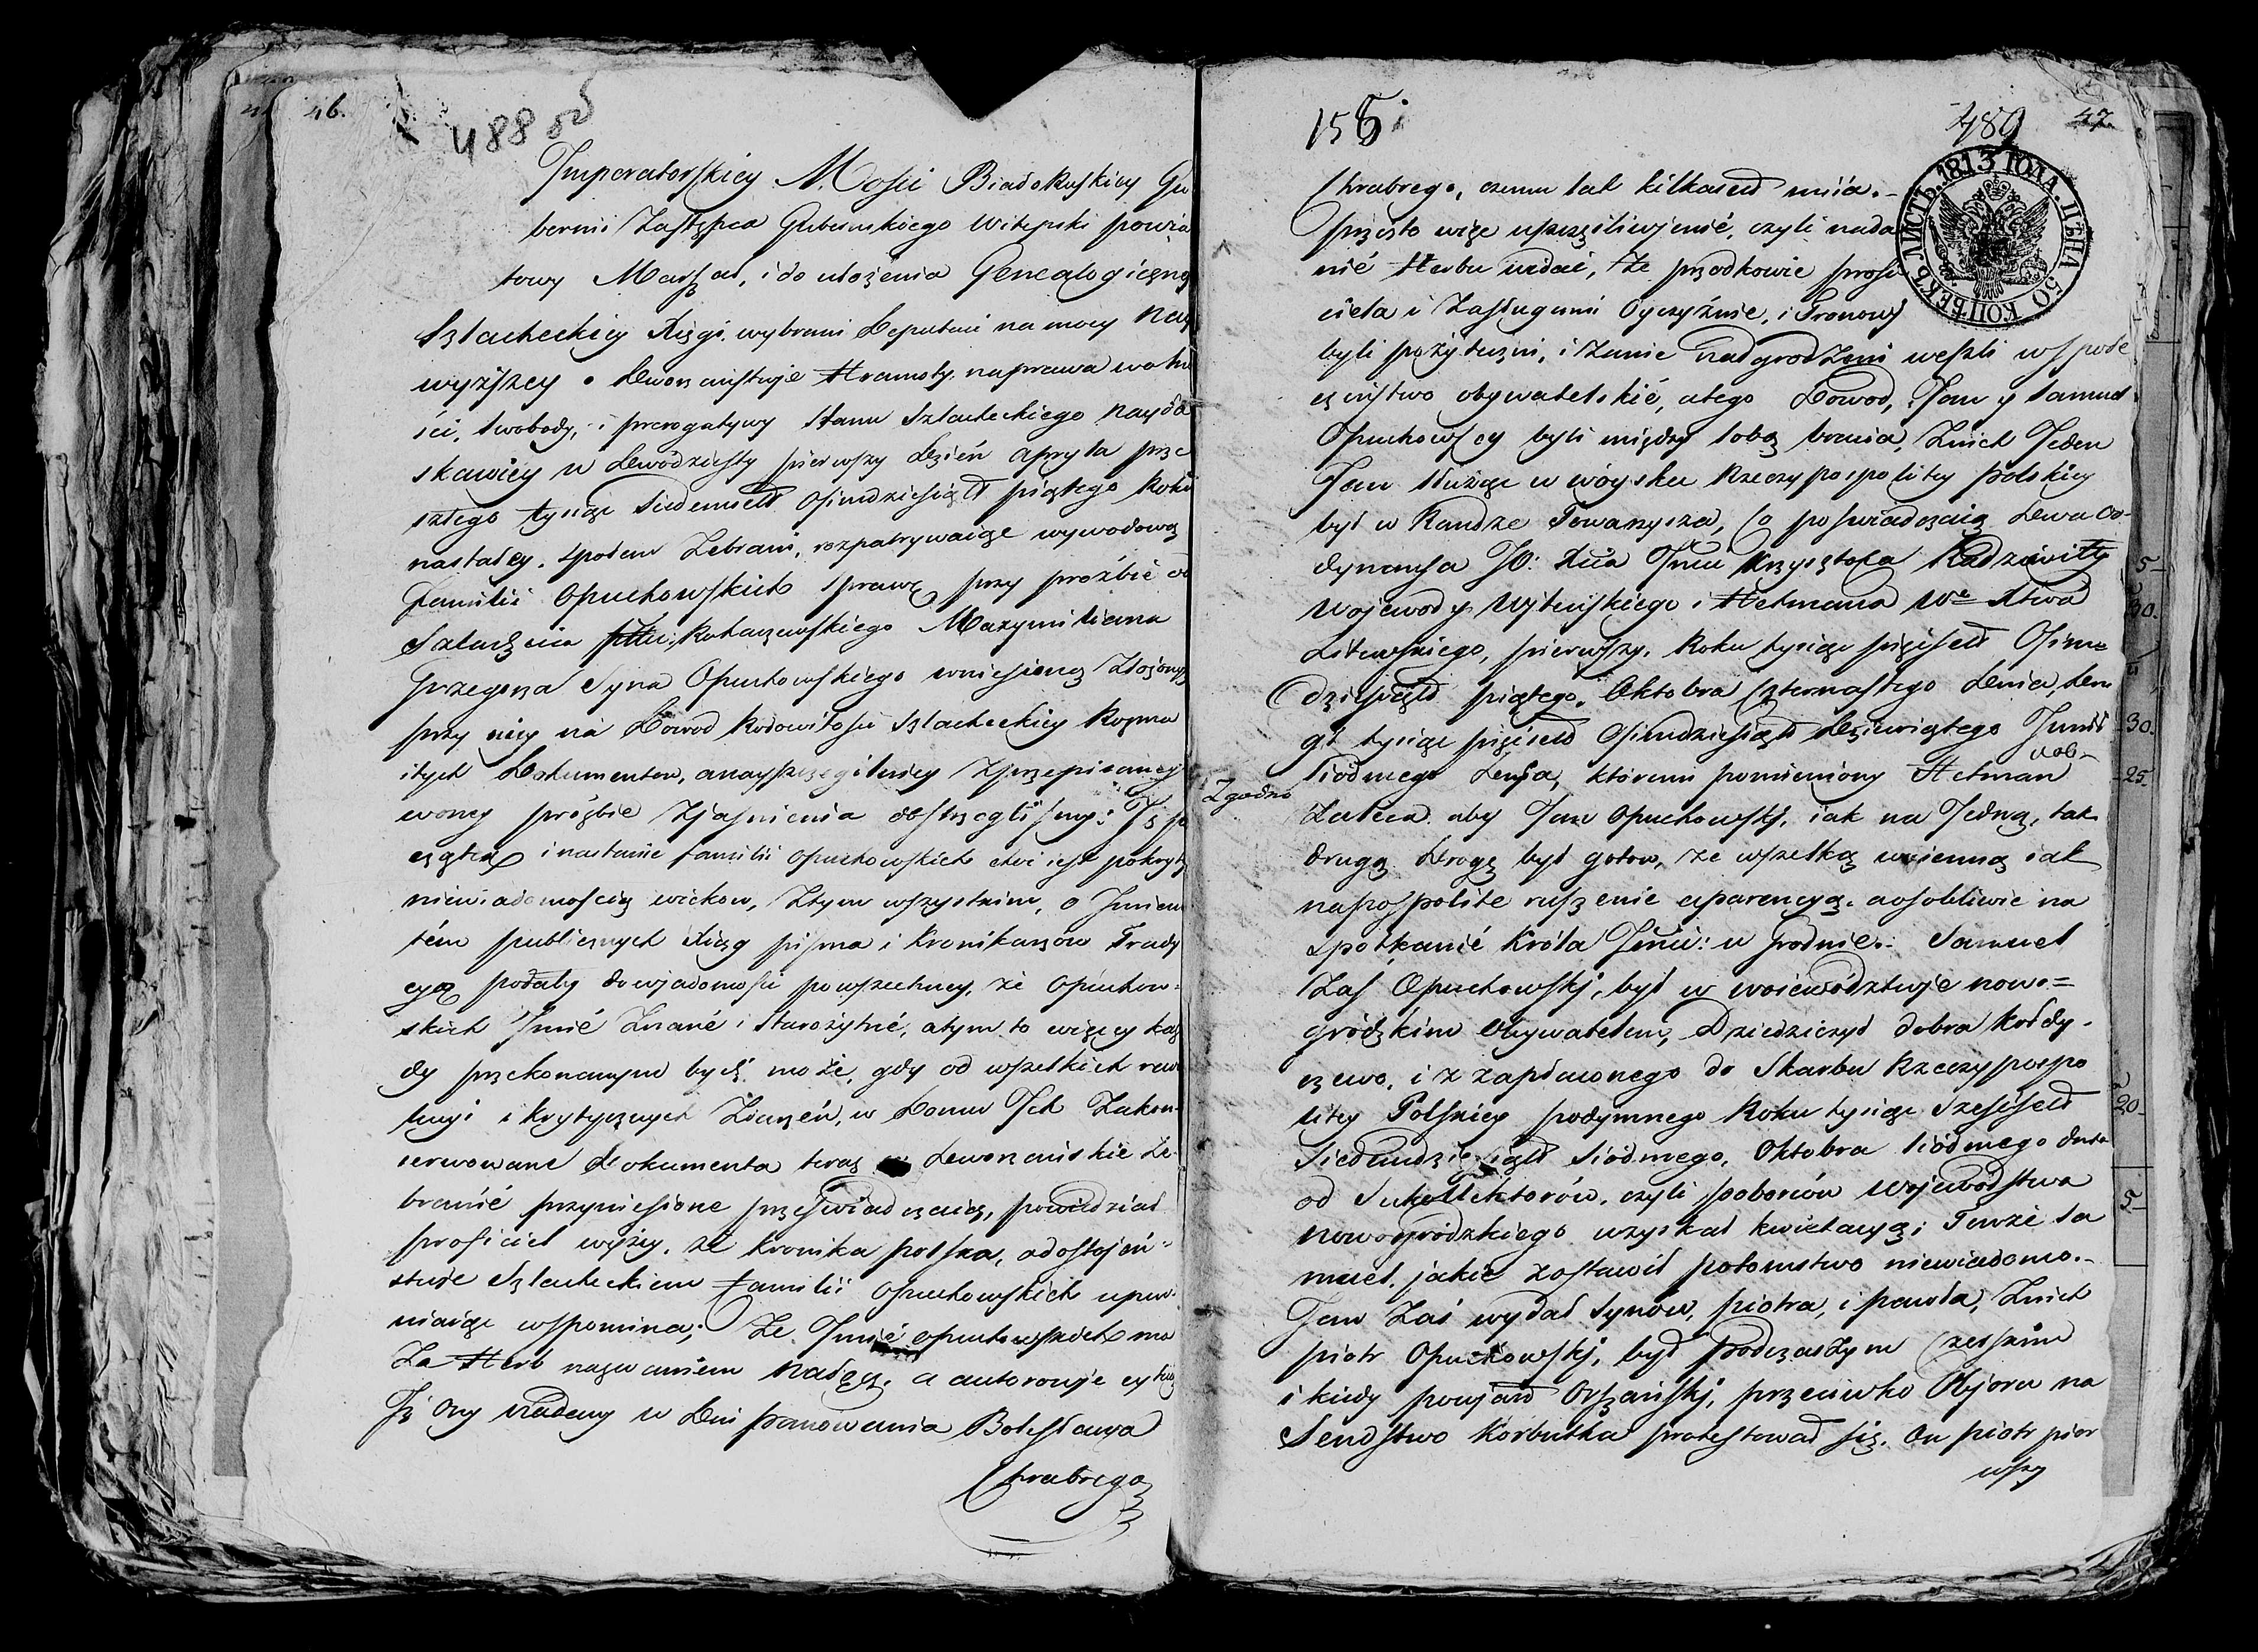 46.
488 об
Imperatorskiey Mości Białoruskiey Gu
bernii Zastępca Gubernskiego Witepski powia
towy Marszał, i do ułożenia Genealogiczney
Szlacheckiey Xięgi wybrani Deputaci na mocy nay
wyższey o Dworzaństwje Hramoty na prawa wolno
ści, swobody, i prerogatywy stanu Szlacheckiego nayła
skawiey w Dwódziesty pierwszy Dzień apryla prze
szłego tysiąc siedemset Osimdziesiąt piątego Roku
nastałey, społem Zebrani, rozpatrywaiąc wywodową
familii Opuchowskich sprawę przy proźbie od
Szlachcica Rohaczewskiego Maxymiliana
Grzegorza syna Opuchowskiego wniesioną złożonych
przy niey na Dowod Rodowitości Szlacheckiey Rozma
itych Dokumentow, a nayszczegulniey z przepisaney
w oney proźbie zjaśnienia dostrzegliśmy: Iż po
czątek i nastanie familii Opuchowskich choć iest pokryty
niewiadomością wiekow, z tym wszystkim, o Imieni
tém publicznych Xiąg pisma i Kronikarzow Trady
cyą podały do wjadomości powszechney, że Opuchow-
skich Imié znané i starożytné, a tym to więcey każ
dy przekonanym być może, gdy od wszelkich rewo
lucyi i krytycznych zdarzeń, w Domu Ich zakon-
serwowane Dokumenta teraz Dworzańskie Ze
branié przyniesione przeświadczaią, powiedział
prosiciel wyżey, że kronika polska, o dostojeń-
stwie Szlacheckiem familii Opuchowskich upew-
niaiąc wspomina; że Imié opuchowskich ma
za Herb nazwaniem Nałęcz, a autorowie cytuią
Iż ony nadany w Dni panowania Bolesława
Chrabrego
156
489
47
ЛИСТЪ. 1813 ГОДА. ЦѢНА 50 КОПѢЕКЪ
Chrabrego, czemu lat kilkaset miia.-
przezto więc uszczęśliwjenié, czyli nada
nié Herbu widać, że przodkowie prosi
ciela i zasługami Oyczyźnie, i Tronowj
byli pożyteczni, i zanie nadgrodzeni weszli wspołe
czeństwo obywatelskié, a tego Dowod, Jan y Samuel
Opuchowscy byli między sobą bracia, z nich Jeden
Jan służąc w wóysku Rzeczypospolitey polskiey
był w Randze Towarzysza, co poświadczaią Dwa Or-
dynansa JO: Xcia Jmci Krzysztofa Radziwiłły
Wojewody Wjleńskiego i Hetmana We Xtwa
Litewskiego, pierwszy Roku tysiąc pięćset Osim-
dziesiąt piątego Oktobra czternastego Dnia, dru
gi tysiąc pięćset Osimdziesiąt Dziewiątego Junii
siodmego Dnia, któremi pomieniony Hetman
Zgodno
zaleca aby Jan Opuchowskj, iak na Jedną, tak
drugą drogę był gotow, ze wszelką woienną iak
na pospolite ruszenie aparencyą, a osobliwie na
spotkanié Króla Jmci: w Grodnie: Samuel
zaś Opuchowskj, był w woiewodztwje nowo=
gródzkim Obywatelem, Dziedziczył dobra Kołdy-
czewo, i z zapłaconego do Skarbu Rzeczypospo
litey Polskiey podymnego Roku tysiąc Sześćset
Siedmdziesiąt Siódmego, Oktobra siódmego dnia
od Sukollektorów, czyli poborców Wojewodstwa
Nowogródzkiego uzyskał kwietacyą; Tenże Sa
muel, jakie zostawił potomstwo niewiadomo.-
Jan zaś wydał synów, piotra, i pawła, z nich
piotr Opuchowskj, był podczaszym
i kiedy powjat Orszańskj, przeciwko
protestował się. On piotr pier
wszy
5
30
30
25
20
5